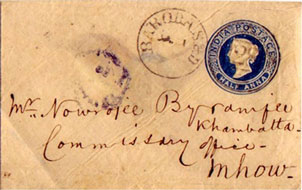 BARODA
INDIA POSTAGE
HALF ANNA
Mr. Nowrojee Byramjee
Khambatta.
Commissary office.
Mhow.